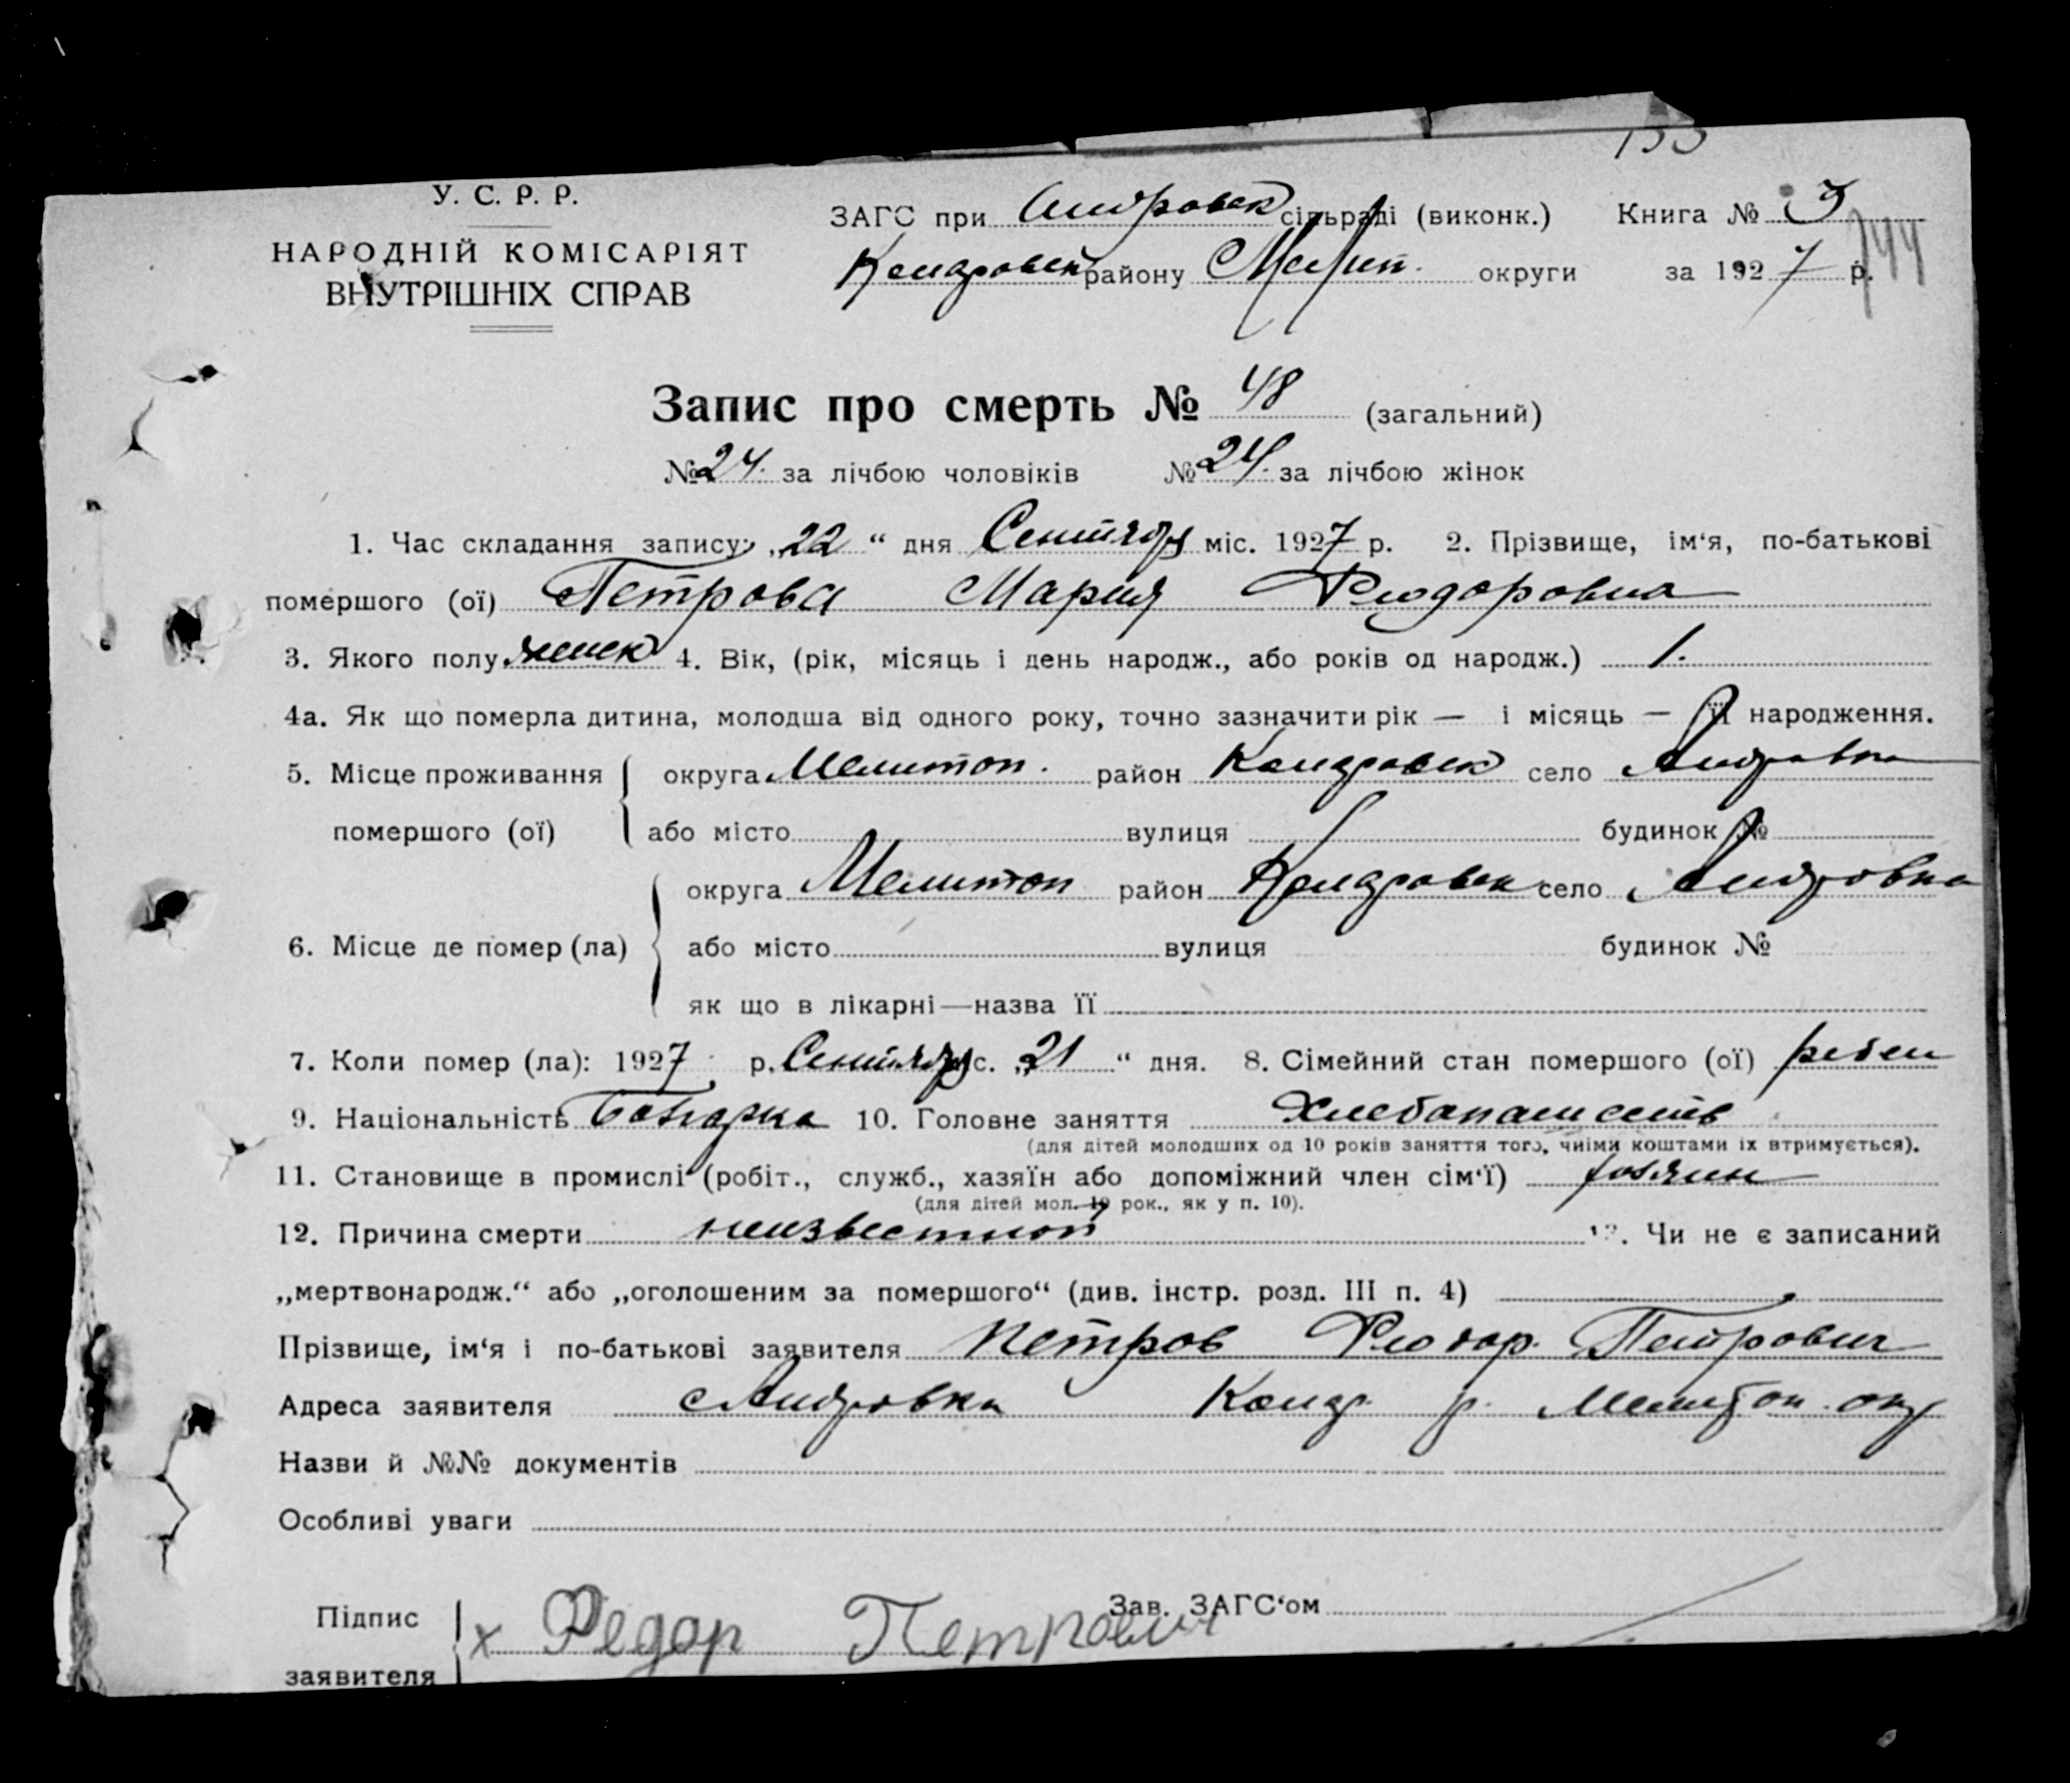 У. С. Р. Р.
НАРОДНІЙ КОМІСАРІЯТ
ВНУТРІШНІХ СПРАВ
ЗАГС при сільраді (виконк.) Книга № 3
району Мелит. округи за 1927 р. 144
Запис про смерть № 48 (загальний)
№ 24. за лічбою чоловіків № 24. за лічбою жінок
1. Час складання запису: „22“ дня Сентября міс. 1927 р. 2. Прізвище, ім‘я, по-батькові
помершого (ої) Петрова Мария Феодоровна
3. Якого полу женск 4. Вік, (рік, місяць і день народж., або років од народж.) 1.
4а. Як що померла дитина, молодша від одного року, точно зазначити рік — і місяць — її народження.
5. Місце проживання округа Мелитоп. район село Андровка
помершого (ої) або місто вулиця будинок №
округа Мелитоп район село Андровка
6. Місце де помер (ла) або місто вулиця будинок №
як що в лікарні—назва її
7. Коли помер (ла): 1927 р. Сентября с. „21“ дня. 8. Сімейний стан помершого (ої) ребен
9. Національність Болгарка 10. Головне заняття Хлебопашеств
(для дітей молодших од 10 років заняття того, чиїми коштами їх втримується).
11. Становище в промислі (робіт., служб., хазяїн або допоміжний член сім‘ї) хозяин
(для дітей мол. 10 рок., як у п. 10).
12. Причина смерти неизвестной 13. Чи не є записаний
„мертвонародж.“ або „оголошеним за помершого“ (див. інстр. розд. III п. 4)
Прізвище, ім‘я і по-батькові заявителя Петров Феодор. Петрович
Адреса заявителя с Андровка р. Мелитоп. окр
Назви й №№ документів
Особливі уваги
Підпис х Федор Петрович Зав. ЗАГС‘ом
заявителя